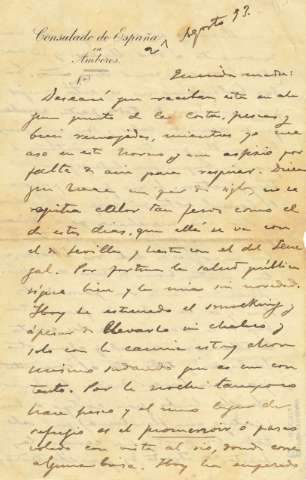 Consulado de España
en
Amberes.
21 Agosto 93.
Nº
Querida madre:
Desearé que reciban esta en al-
gun punto de la Costa, frescas y
bien remojadas, mientras yo me
aso en este horno y me asfixio por
falta de aire para respirar. Dicen
que hace un par de siglos no se
registra calor tan feroz como el
de estos días, que allá se va con
el de Sevilla y hasta con el del Sene-
gal. Por fortuna la salud pública
sigue bien y la mia sin novedad.
Hoy he estrenado el smocking y
apesar de llevarlo sin chaleco y
solo con la camisa estoy ahora
mismo sudando que es un con-
tento. Por la noche tampoco
hace fresco y el unico lugar de
refugio es el promenoir ó paseo
con vista al rio, donde corre
alguna brisa. Hoy ha empezado